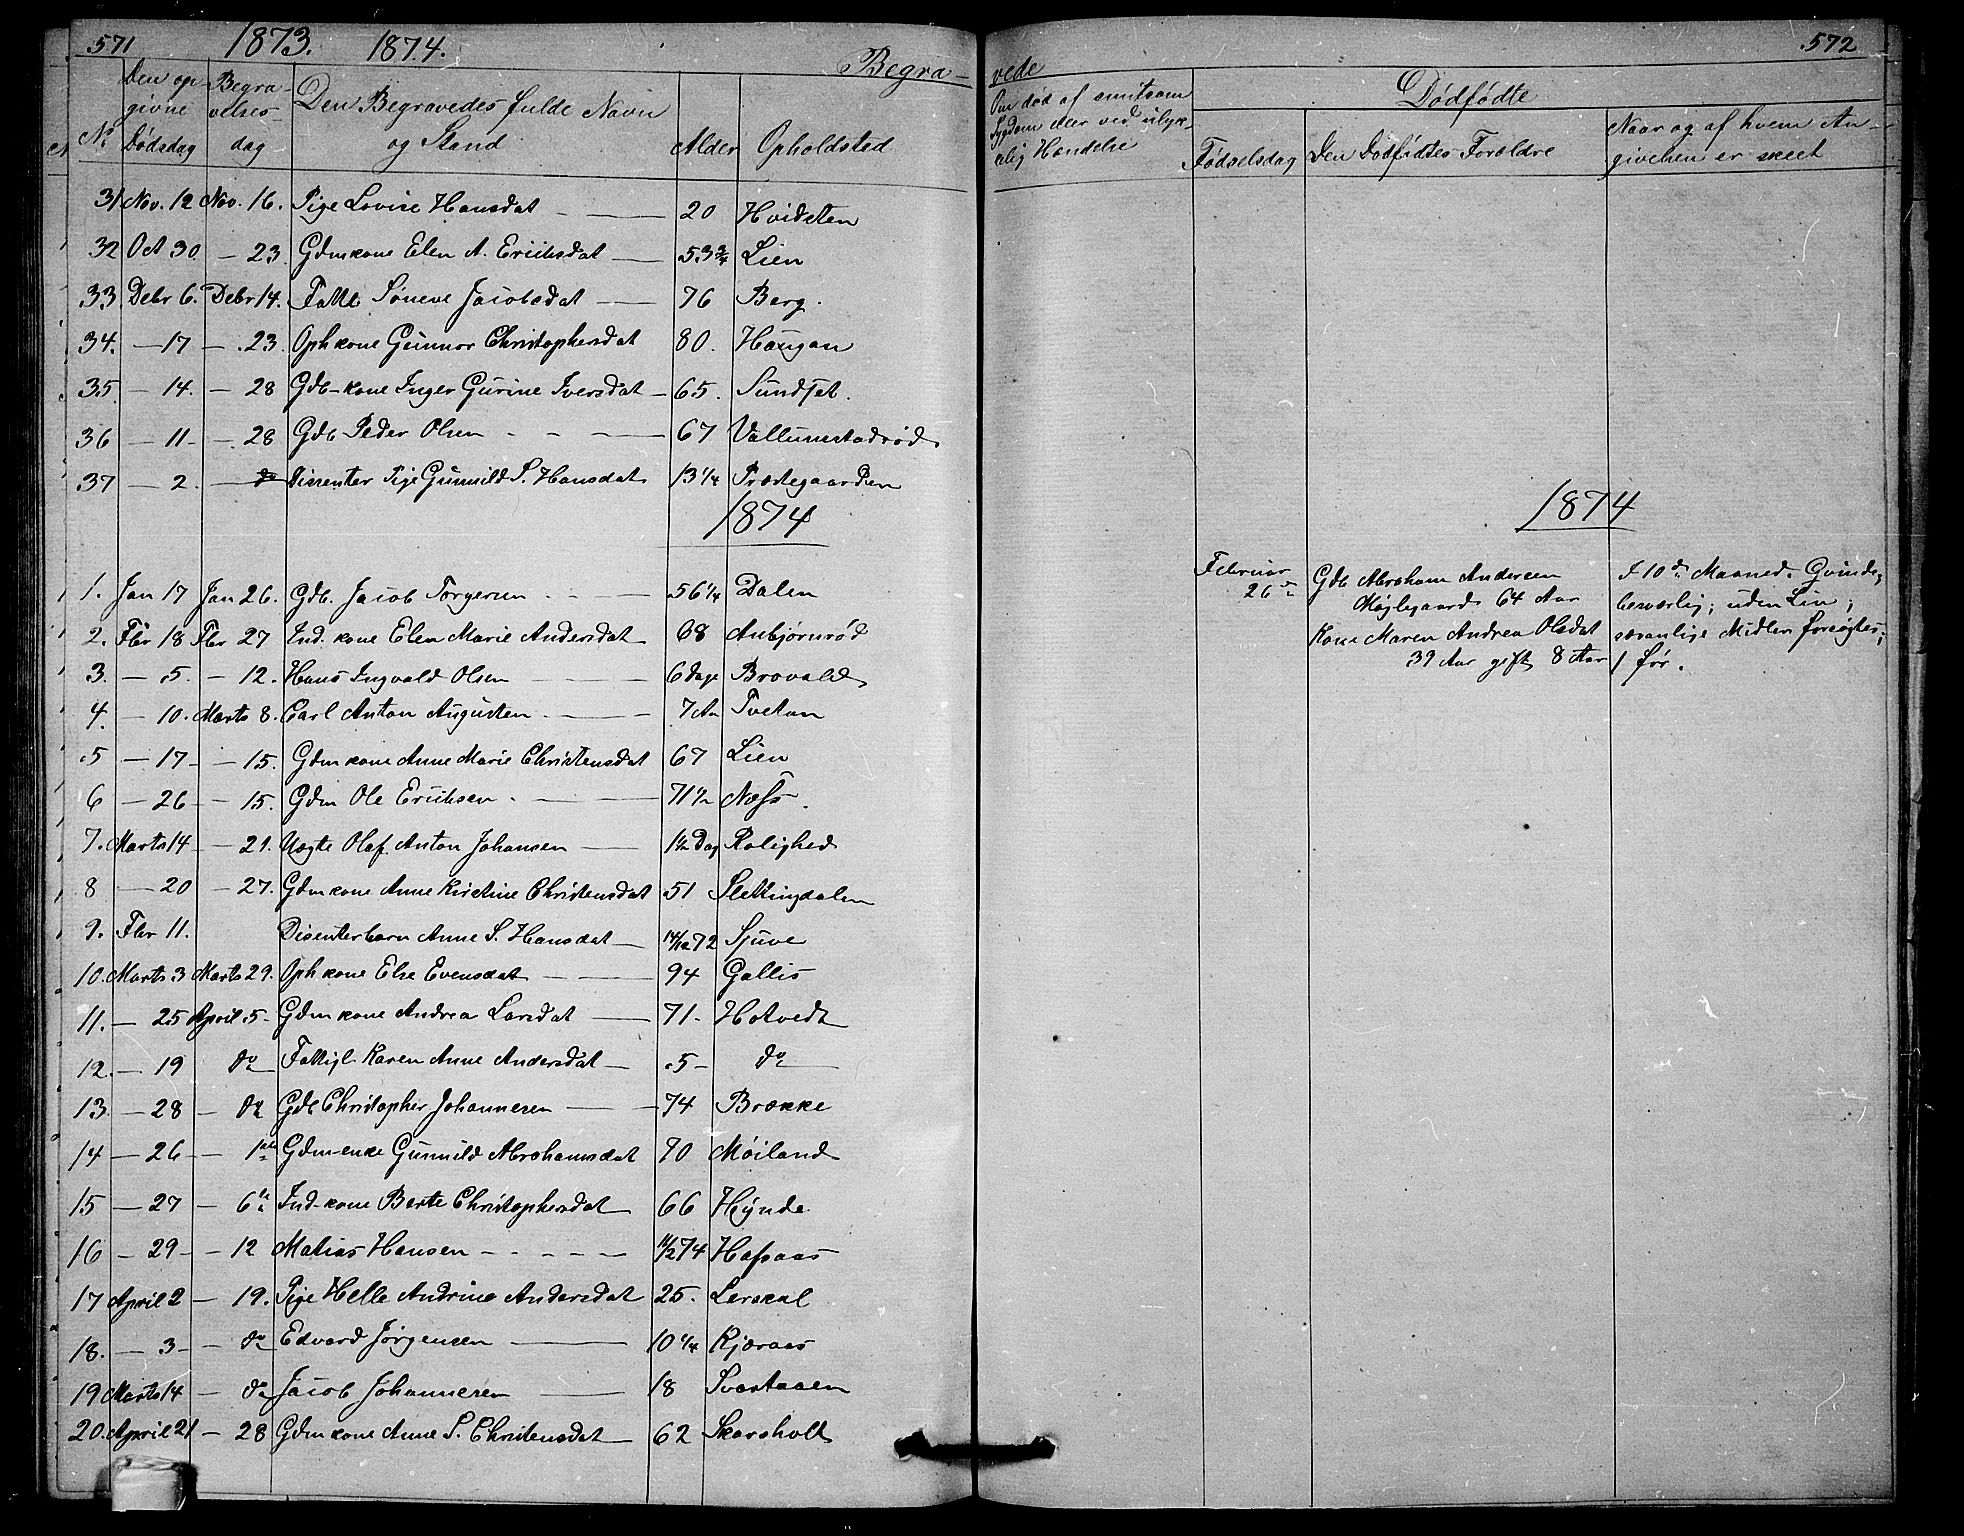 571 1873. 1874. Begra-
No Den opgivne Dødsdag Begravelsesdag Den Begravedes fulde Navn og Stand Alder Opholdsted
31 Nov. 12 Nov. 16. Pige Lovise Hansdat 20 Hvidsten
32 Oct 30 - 23. Gdmkone Elen A. Eriksdat 53 3/4 Lien
33. Debr 6. Debr 14. Fattl Søneve Jacobsdat 76 Berg.
34. - 17 - 23. Ophkone Gunnor Christophersdat 80. Haugan
35. - 14. - 28 Gdb-kone Inger Gurine Iversdat 65. Sundset.
36 - 11 - 28 Gdb Peder Olsen 67 Vallumstadrød
37 - 2. - do Dissenter Pige Gunnild S. Hansdat 13 1/4 Præstegaarden
1874
1. Jan 17 Jan 26. Gdb. Jacob Torgersen 56 1/4 Dalen
2. Fbr 18 Fbr 27 Ind. kone Elen Marie Andersdat 68 Anbjørnrød
3. - 5. - 12. Hans Ingvald Olsen 6 Dage Brovald
4. - 10. Marts 8. Carl Anton Augusten 7 Aar Tvetan
5 - 17 - 15. Gdmkone Anne Marie Christensdat 67 Lien
6 - 26 - 15. Gdm Ole Eriksen 71 1/2 Næss.
7. Marts 14 - 21. Uægte Olaf Anton Johansen 1 1/2 Dag Rolighed
8 - 20 - 27. Gdmkone Anne Kirstine Christensdat 51 Slettingdalen
9. Fbr 11. Disenterbarn Anne S. Hansdat 14/12 72 Sjuve
10. Marts 3 Marts 29. Ophkone Else Evensdat 94 Gallis
11. - 25 April 5 Gdmkone Andrea Larsdat 71 Hotvedt
12. - 19 do Fattigl Karen Anne Andersdat 5 do
13. - 28 - do Gdb Christopher Johannesen 74 Brække
14 - 26 - 1ste Gdm-enke Gunnild Abrahamsdat 70 Møiland
15 - 27 - 6te Ind-kone Berte Christophersdat 66 Hynde
16 - 29 - 12 Matias Hansen 11/2 74 Hafsaas
17 April 2 - 19. Pige Helle Andrine Andersdat 25. Lerskal
18. - 3 - do Edvard Jørgensen 10 1/4 Kjæraas
19 Marts 14 - do Jacob Johannesen 18 Svartaaen
20. April 21 - 28 Gdmkone Anne S. Christensdat 62 Skarsholt
vede 572
Om død af smitsom Sygdom eller ved ulykkelig Hændelse
Dødfødte
Fødselsdag Den Dødfødtes Forældre Naar og af hvem Angivelsen er skeet
1874
Februar Gdb Abraham Andersen I 10de Maaned. Qvinde,
26de Møglegaard 64 Aar besværlig; uden Liv;
Kone Maren Andrea Olsdat sævanlige Midler forsøgtes;
39 Aar gift 8 Aar 1 før.